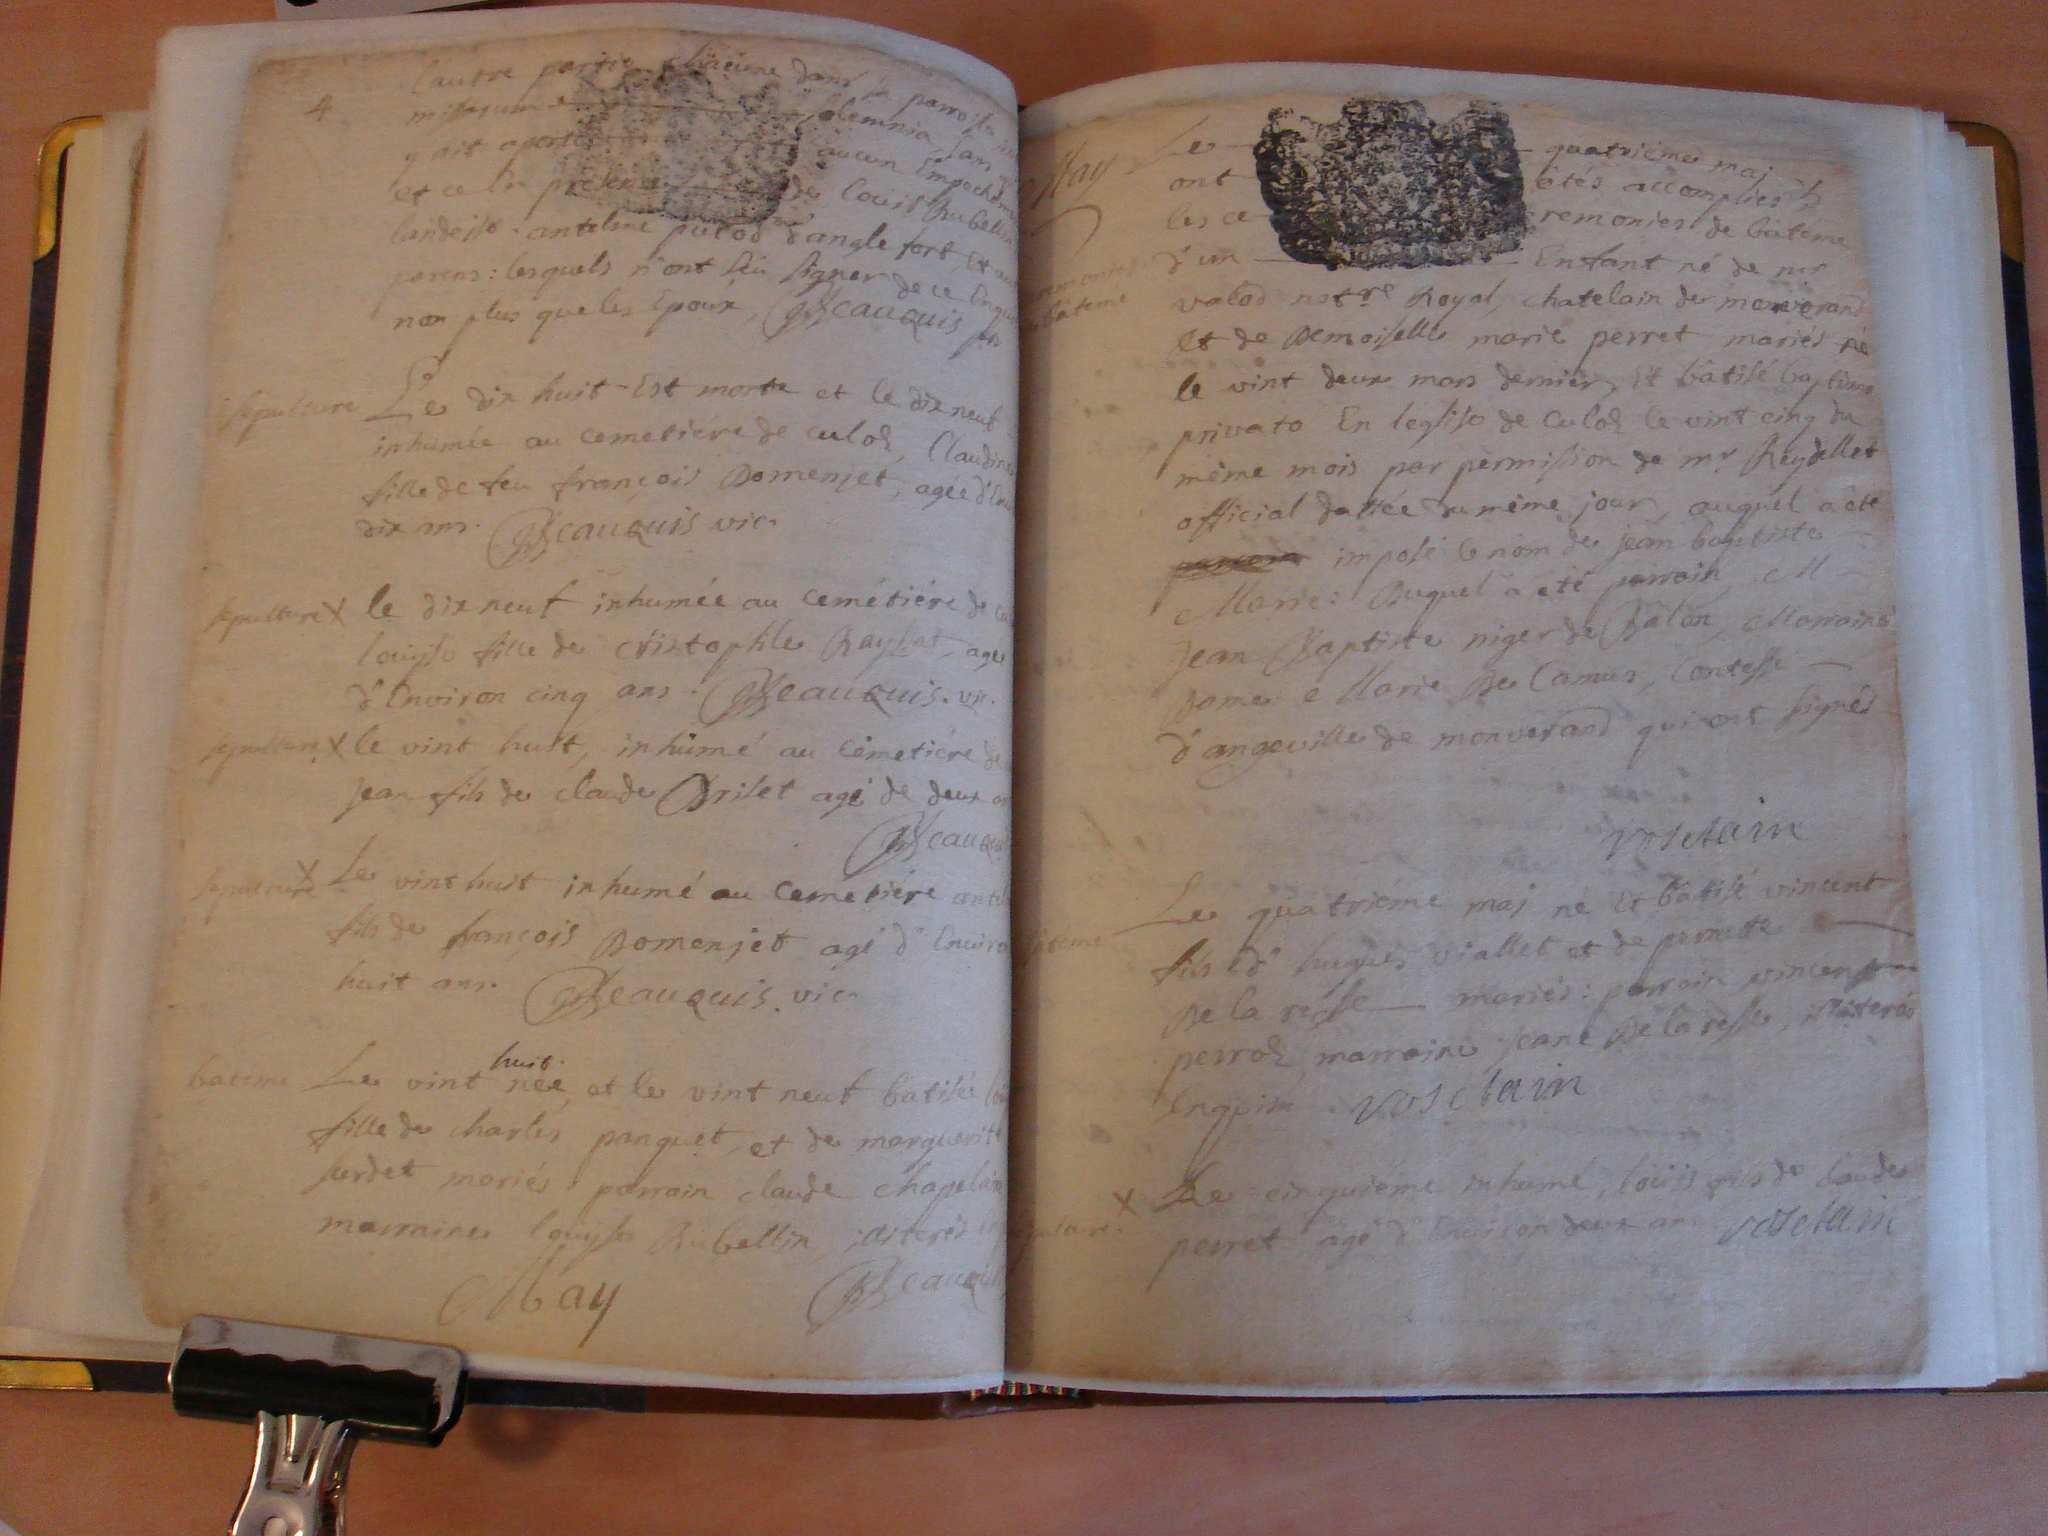 4
l'autre partie dans la parroisse
missarum solemnia, sans
y ait aporté aucun Empechem
et ce En presence de Louis Rubellin
landeise antelme pulod d'anglefort, Et
parens: lesquels n'ont sçu signer de ce Enquis
non plus que les Epoux, BSeauquis
sepulture Le dix huit Est morte et le dix neuf
inhumée au cemetiére de culoz, Claudine
fille de feu françois Domenjet, agée d'En
dix ans. BSeauquis vic.
sepulture X le dix neuf inhumée au cemétiére de
louyse fille de cristophle Rayssat, agée
d'Environ cinq ans. BSeauquis. vic.
sepulture X le vint huit, inhumé au cemetiére de
Jean fils de claude Brilet agé de deux
BSeauqu
sepulture X Le vint huit inhumé au cemetiére antel
fils de françois Domenjet agé d'Enviro
huit ans. BSeauquis. vic.
huit
bateme Le vint née, et le vint neuf bâtisée
fille de charles panquet, et de marguerite
surdet mariés parrain claude chapelain
marraine louyse Rubellin, illiterés
May BSeauqui
May Le quatriéme maj
ont étés accomplies
les ce remonies de bâteme
d'un Enfant né de mr
bâteme valod notre Royal, chatelain de monverand
Et de Demoiselle marie perret mariés né
le vint deux mars dernier, Et bâtisé baptismo
privato En leglise de Culoz le vint cinq du
même mois par permission de mr Reydellet
official dattée du même jour, auquel a été
imposé le nom de jean baptiste
Marie: Duquel a été parrain M
Jean Baptiste niger de Balon, Marraine
Dame Marie De Camus, Contesse
d'angeville de monverand qui ont signés
vosclain
bateme Le quatriéme maj né Et bâtisé vincent
fils d'hugues viallet et de pernette
De la resse mariés: parrain vincen
perroz, marraine jeane De la resse, illiterés
Enquis. vosclain
sepulture X Le cinquiéme inhumé, loüis fils de claude
perret agé d'Environ deux ans vosclain